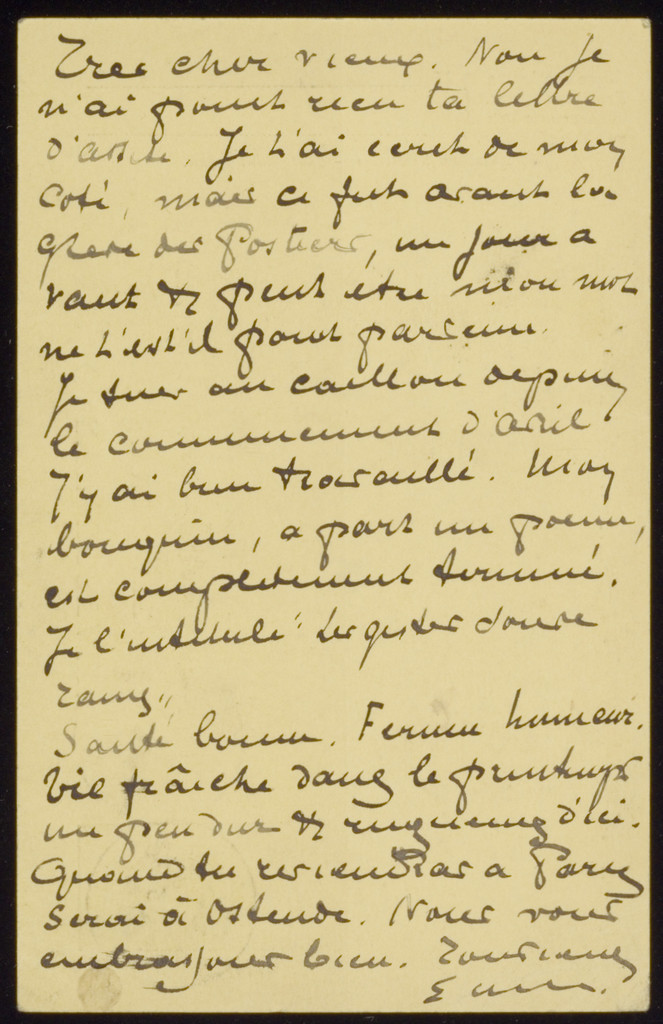 Tres cher vieux. Non je
n'ai point recu ta lettre
d'assise. Je t'ai ecrit de mon
coté, mais ce fut avant la
greve des Postiers, un jour a
vant & peut etre mon mot
ne t'est'il point parvenu.
Je suis au caillou depuis
le commencement d'avril
J'y ai bien travaillé. Mon
bouquin, a part un poeme,
est completement terminé.
Je l'intitule "Les
rains"
Santé bonne. Ferme humeur.
Vie fraîche dans le printemps
un peu dur & rugueux d'ici.
Quand tu reviendras a Paris
serai à Ostende. Nous vous
embrassons bien. Tout